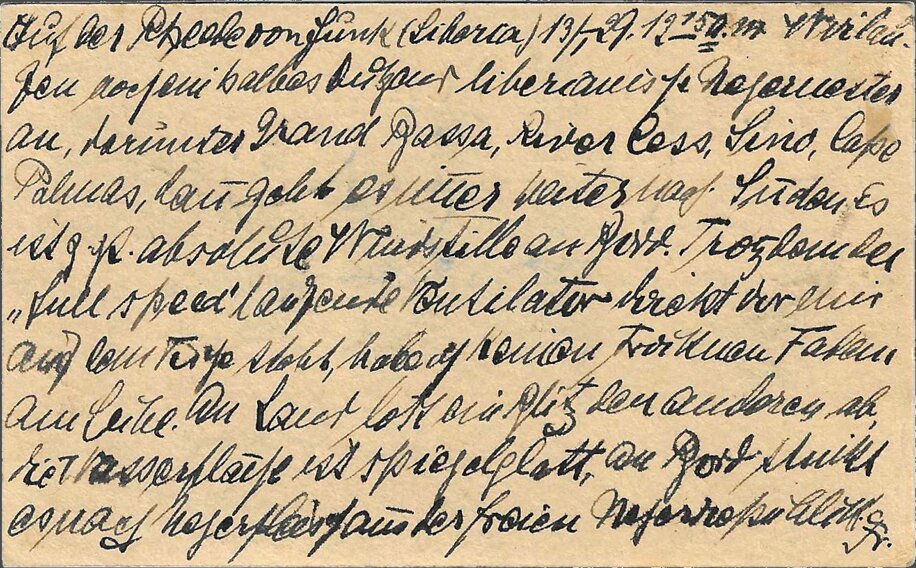 Auf der Rheede von Junk (Liberia) 13/ 29. 19 150 m Wir lau-
fen noch ein halbes Dutzend liberianisch. Negernester
an, darunter Grand Bassa, River Cess, Sino, Cape
Palmas, dann geht es immer weiter nach Süden. Es
ist g. absolute Windstille an Bord. Trotzdem der
"full speed" laufende Ventilator direkt vor mir
auf dem Tische steht, habe ich keinen trocknen Faden
am Leibe. An Land löst ein Blitz den anderen ab,
die Wasserfläche ist spiegelglatt, an Bord stinkt
es nach Negerfleisch aus der freien Negerrepublik.
Fr.